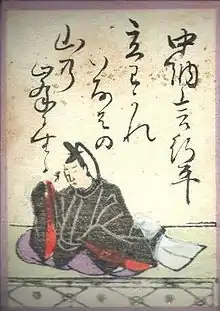 中納言行平
立わかれ
いなはの
山乃
峯に生